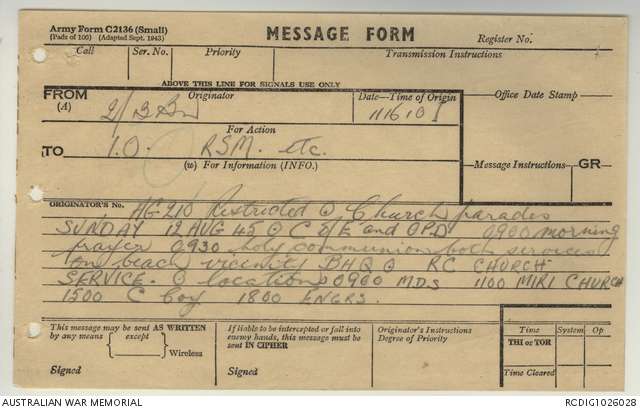 Army Form C2136 (Small)
(Pads of 100) (Adapted Sept. 1943)
MESSAGE FORM
Register No.
Call Ser. No. Priority Transmission Instructions
ABOVE THIS LINE FOR SIGNALS USE ONLY
FROM
(A)
Originator
Date—Time of Origin
Office Date Stamp
2/13 Bn
111610 I
For Action
TO
I.O. RSM. etc.
(W) For Information (INFO.)
Message Instructions GR
ORIGINATOR'S No. AG 210 Restricted Church parades
SUNDAY 12 AUG 45 C of E and OPD 0900 morning
prayer 0930 holy communion both services
on beach vicinity BHQ RC CHURCH
SERVICE. location 0900 MDS 1100 MIRI CHURCH
1500 C Coy 1800 ENGRS.
This message may be sent AS WRITTEN
by any means except
Wireless
Signed
If liable to be intercepted or fall into
enemy hands, this message must be
sent IN CIPHER
Signed
Originator's Instructions
Degree of Priority
Time System Op
THI or TOR
Time Cleared
AUSTRALIAN WAR MEMORIAL
RCDIG1026028